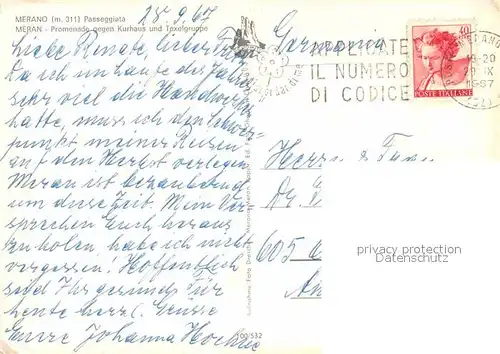 MERANO (m. 311) Passeggiata
MERAN - Promenade gegen Kurhaus und Texelgruppe
28.9.67
Liebe Renate, lieber
Da ich im Laufe des Jahres
sehr viel die Handwerker
hatte, muss ich den Schwer-
punkt meiner Reisen
auf den Herbst verlegen
Meran ist bezaubernd
um diese Zeit. Mein Ver-
sprechen Euch heraus
zu holen, habe ich nicht
vergessen! Hoffentlich
seid Ihr gesund. Für
heute herzl. Grüsse
Eure Johanna
Germania
APPLICATE
IL NUMERO
DI CODICE
40
POSTE ITALIANE
Herrn u Frau
Dr.
605
An
privacy protection
www.ansichtskarten-center.de
100/532